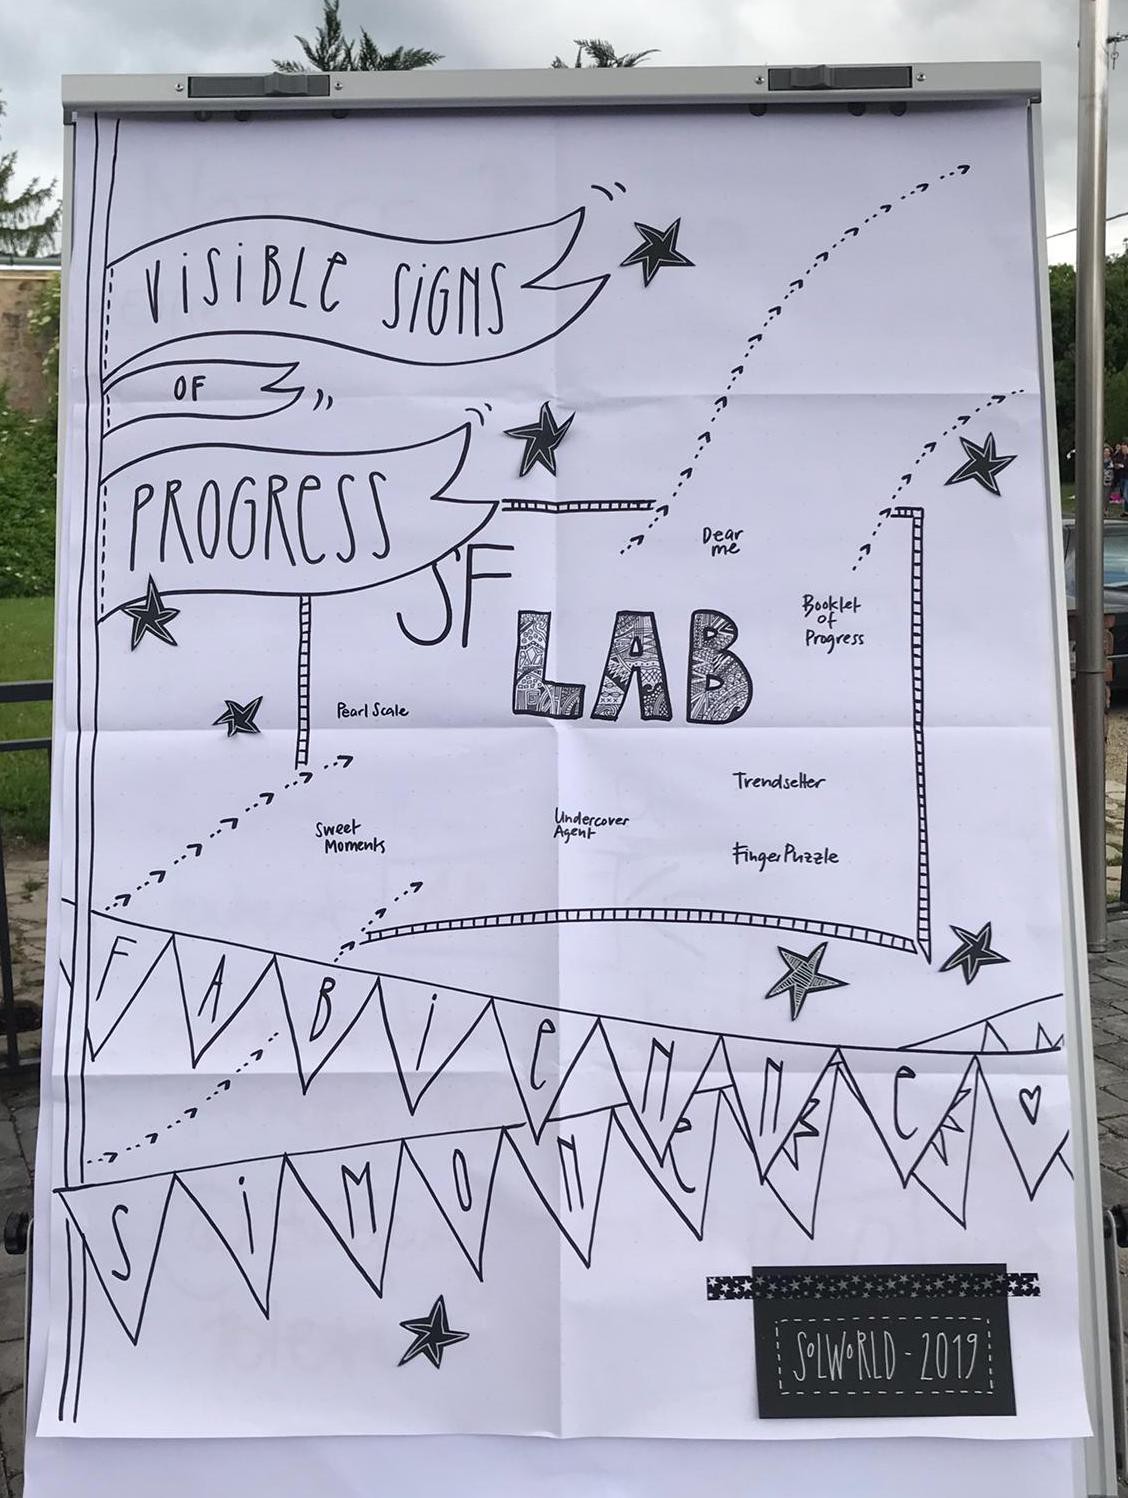 VISIBLE SIGNS
OF
PROGRESS
SF
LAB
Dear
me
Booklet
of
Progress
Pearl Scale
Trendsetter
Sweet
Moments
Undercover
Agent
Finger Puzzle
FABIENNE
SIMONE
SOLWORLD - 2019